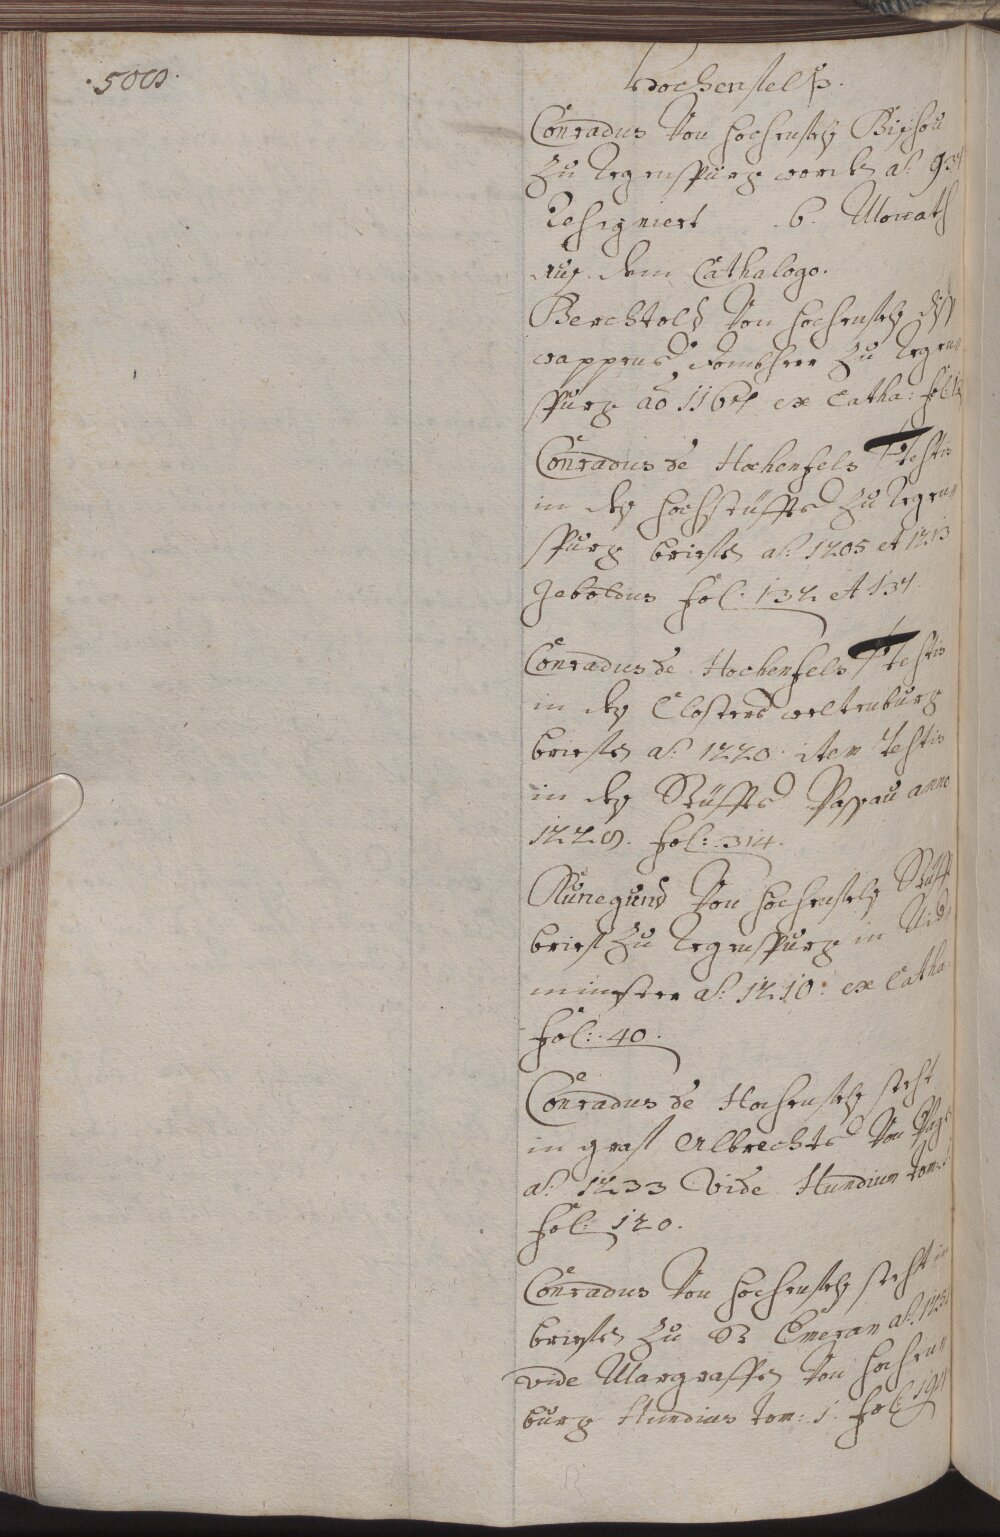 Hochenfelß.
Conradus Von hochenfelß Bischou
Zu Regenspurg worden a͞o: 93
Resigniert 6. Monath
auß dem Cathalogo.
Berchtold Von hochenfelß diß
wappens, dombherr Zu Regen„
spurg a͞o 116 ex Catha: fol:
Conradus de Hochenfels testis
in deß hochstüffts Zu Regen„
spurg brieffen a͞o: 1205 et 1213
Geboldus fol: 132 et 137
Conradus de Hochenfels testis
in deß Closters weltenburg
brieffen a͞o: 1220. item testis
in deß Stüffts Passau anno
1228. fol: 314.
Kunegund Von hochenfelß Stüfft
brieff Zu Regenspurg in Nider
minster a͞o: 1210. ex Catha:
fol: 40.
Conradus de Hochenfelß steht
in graf Albrechts Von
a͞o: 1233 Vide Hundium tom:
fol: 120.
Conradus Von hochenfelß steht in
brieffen Zu St Emeran a͞o:
vide Margraffen Von hochen„
burg Hundius tom: 1. fol: